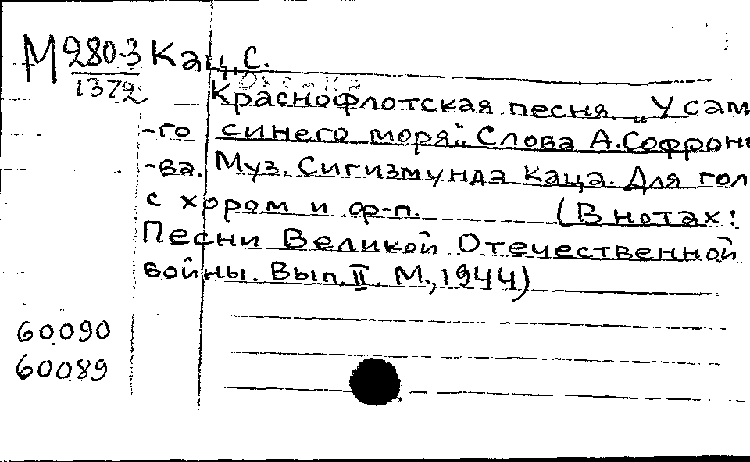 М280-3 Кац, С.
1372
Краснофлотская песня „У сам
-го синего моря". Слова А. Софроно
-ва. Муз. Сигизмунда Каца. Для гол
с хором и ф-п. (В нотах:
Песни Великой Отечественной
войны. Вып. II. М., 1944)
60090
60089